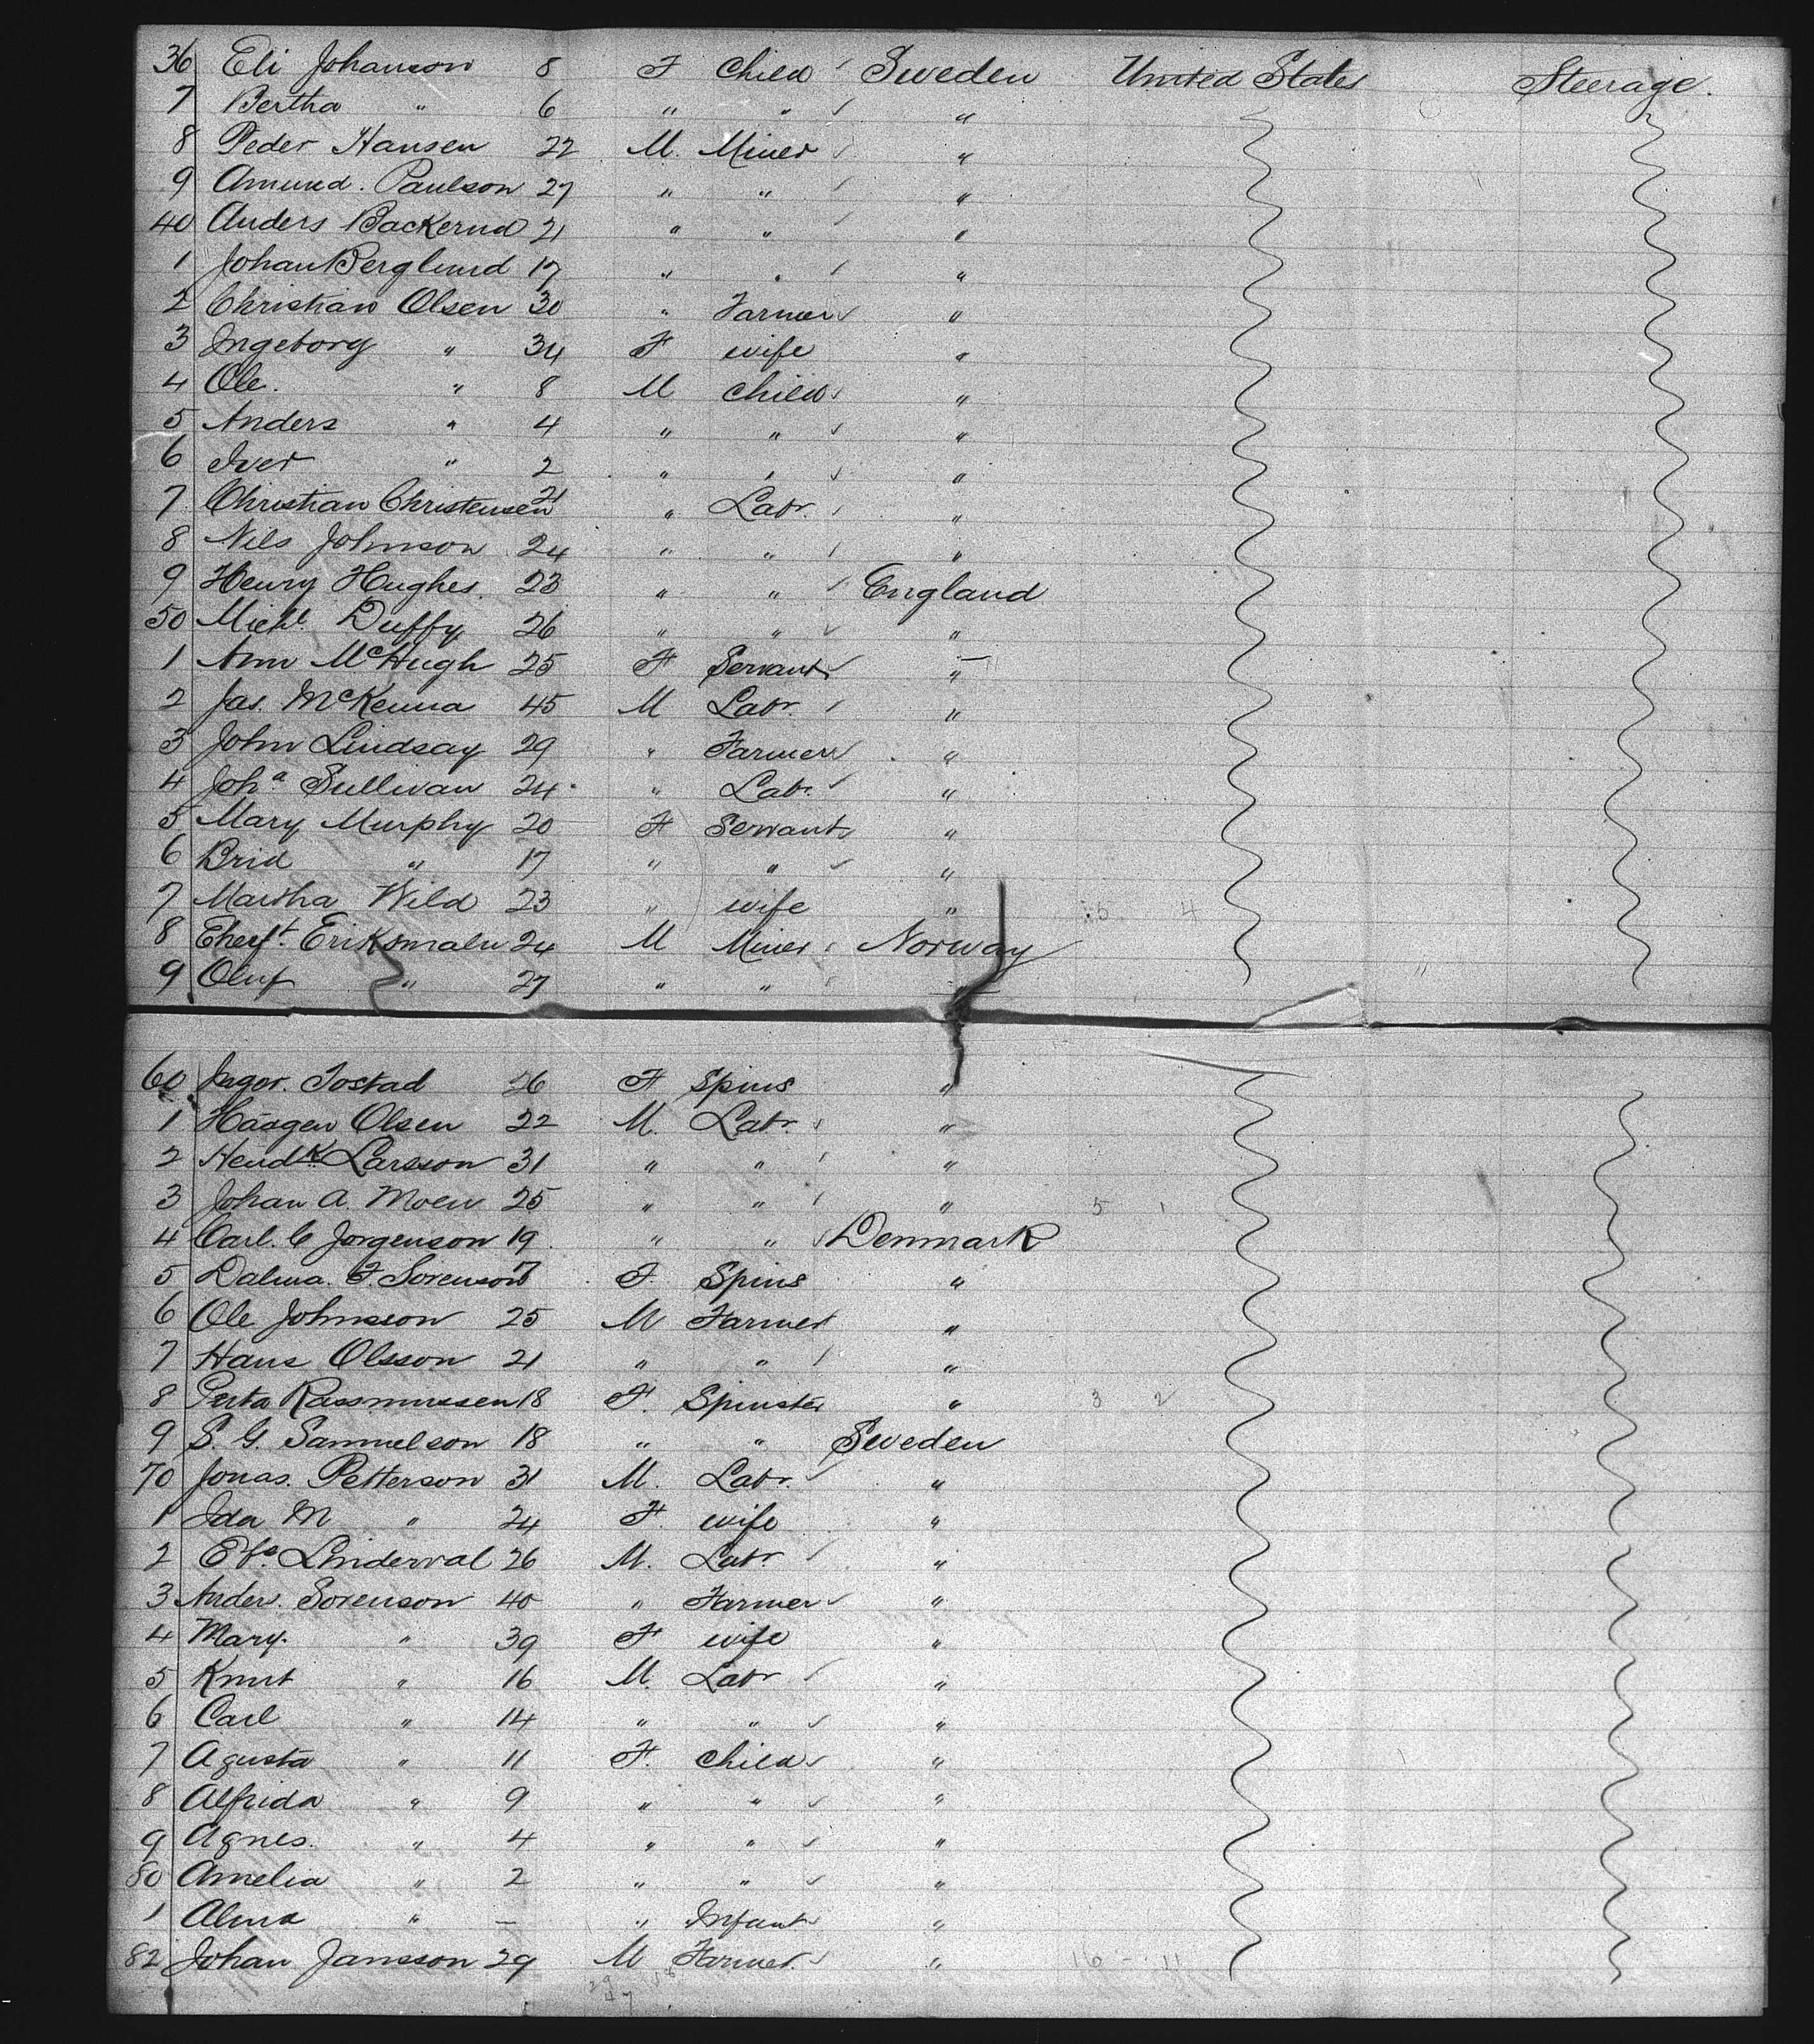 36 Eli Johanson 8 F Child Sweden United States Steerage.
7 Bertha " 6 " " "
8 Peder Hansen 22 M. Miner "
9 Amund. Paulson 27 " " "
40 Anders Backerud 21 " " "
1 Johan Berglund 17 " " "
2 Christian Olsen 30 " Farmer "
3 Ingeborg " 34 F wife "
4 Ole. " 8 M child "
5 Anders " 4 " " "
6 Iver " 2 " " "
7 Christian Christensen 21 " Labr. "
8 Nils Johnson 24 " " "
9 Henry Hughes. 23 " " England
50 Michl. Duffy 26 " " "
1 Ann McHugh 25 F Servant "
2 Jas. McKenna 45 M Labr. "
3 John Lindsay 29 " Farmer "
4 Joha Sullivan 24 " Labr. "
5 Mary Murphy 20 F Servant "
6 Brid " 17 " " "
7 Martha Wild 23 " wife " 4
8 Eriksmaln 24 M Miner Norway
9 Oluf " 27 " " "
60 Ingor. Tostad 26 F Spins "
1 Haagen Olsen 22 M. Labr. "
2 Hendk Larsson 31 " " "
3 Johan A. Moen 25 " " " 5 1
4 Carl. C Jorgenson 19 " " Denmark
5 Dalma. F Sorenson 7 F. Spins "
6 Ole Johnson 25 M Farmer "
7 Hans Olsson 21 " " "
8 Rassmussen 18 F. Spinster " 3 2
9 S. G. Samuelson 18 " " Sweden
70 Jonas. Petterson 31 M. Labr. "
1 Ida M " 24 F. wife "
2 Linderval 26 M. Labr "
3 Ander. Sorenson 40 " Farmer "
4 Mary. " 39 F wife "
5 Knut " 16 M. Labr "
6 Carl " 14 " " "
7 Agusta " 11 F. child "
8 Alfrida " 9 " " "
9 Agnes. " 4 " " "
80 Amelia " 2 " " "
1 Alma " — " Infant "
82 Johan Jansson 29 M Farmer. " 16 - 11